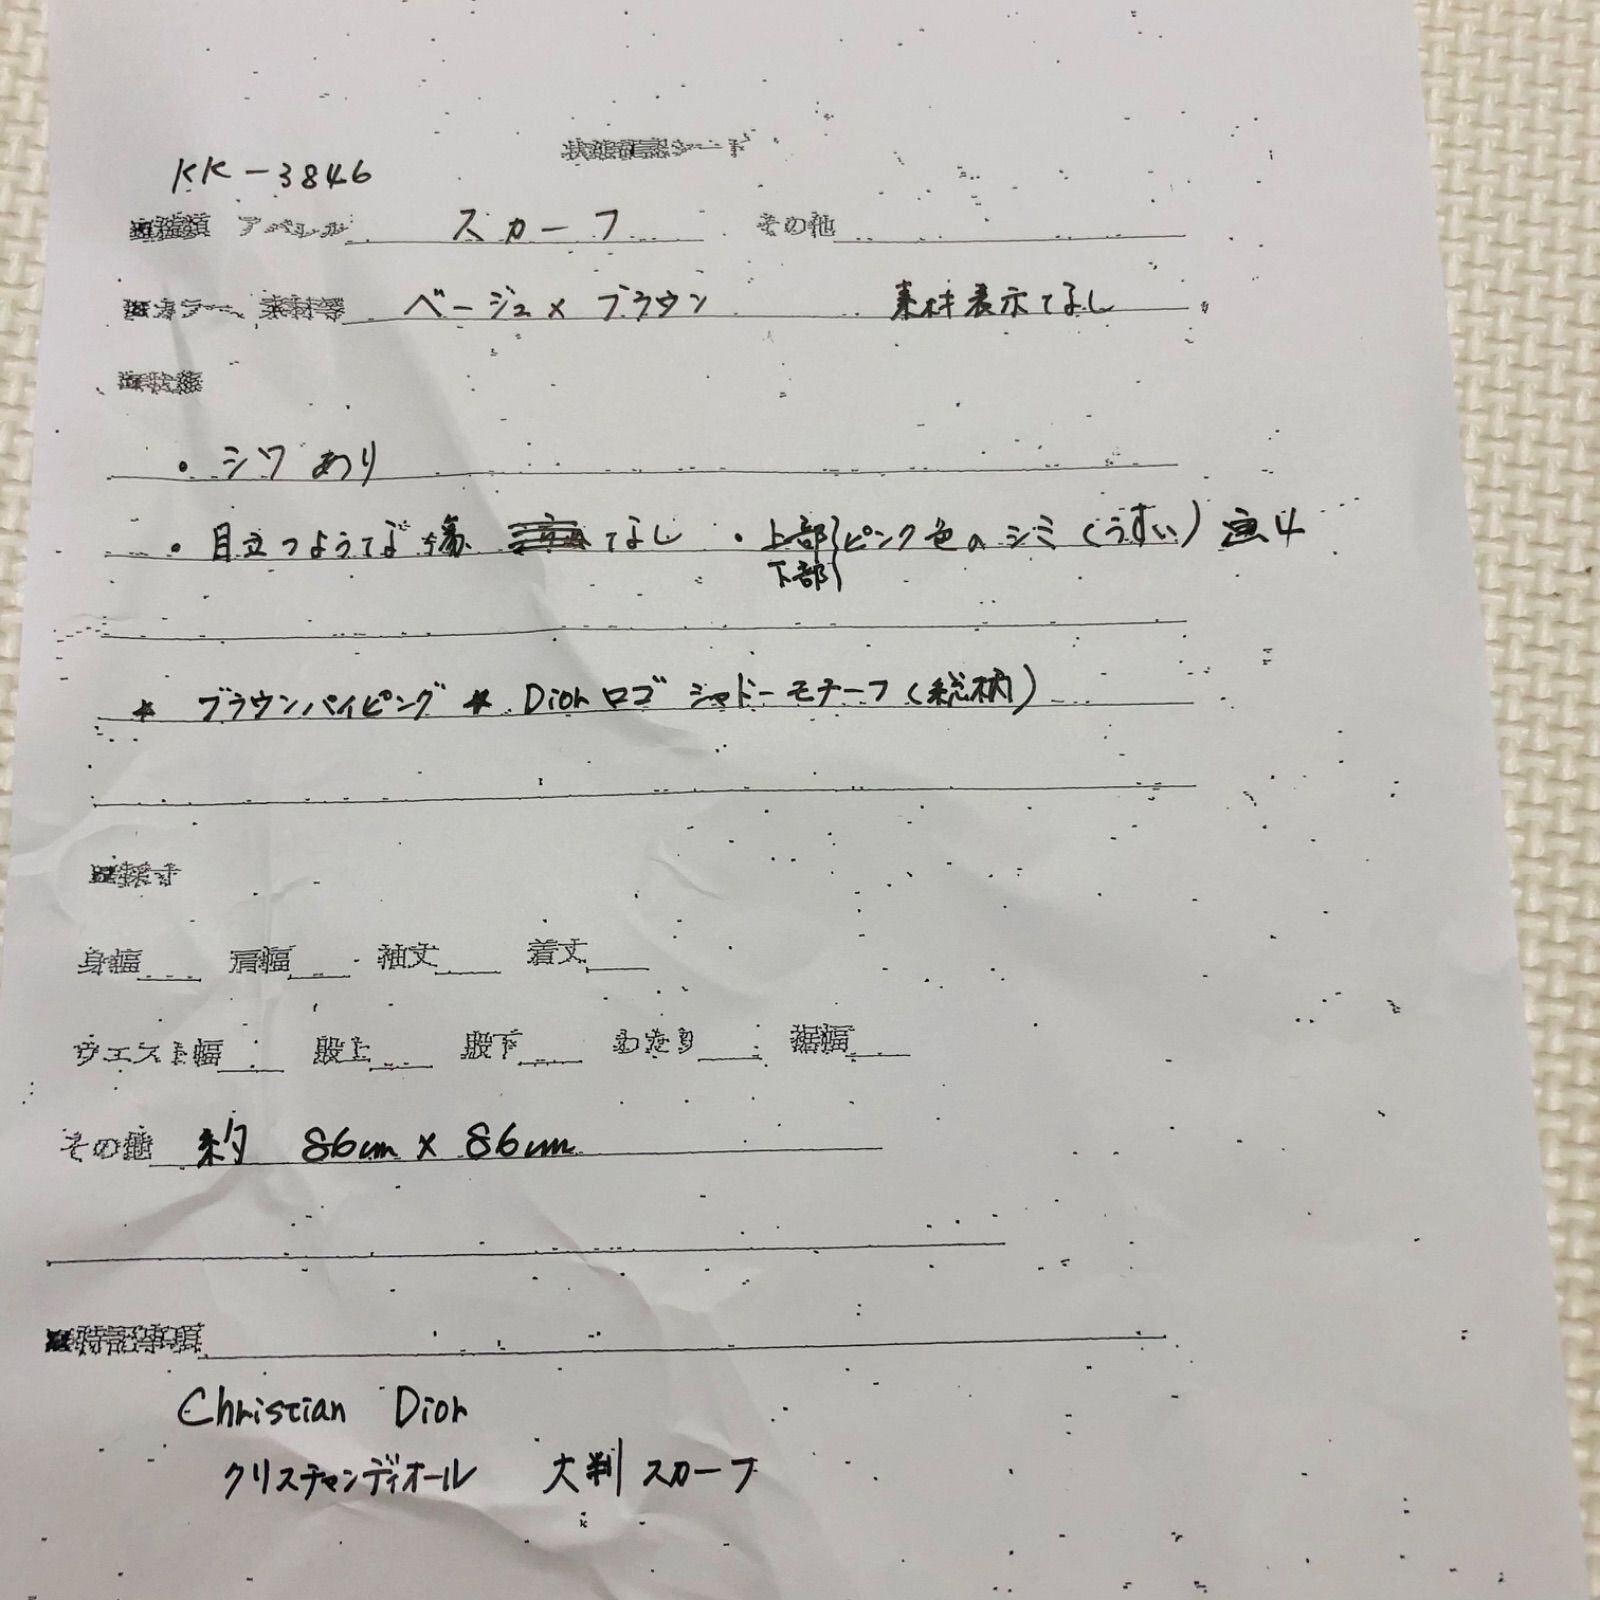 状態確認シート
KK-3846
■種類 アパレル スカーフ その他
■カラー、素材等 ベージュ×ブラウン 素材表示なし
■状態
・シワあり
・目立つような傷 なし ・上部 ピンク色のシミ(うすい) 画4
下部
★ ブラウンパイピング ★ Diorロゴ シャドーモチーフ(総柄)
■採寸
身幅 肩幅 袖丈 着丈
ウエスト幅 股上 股下 わたり 裾幅
その他 約 86cm×86cm
■特記事項
Christian Dior
クリスチャンディオール 大判スカーフ